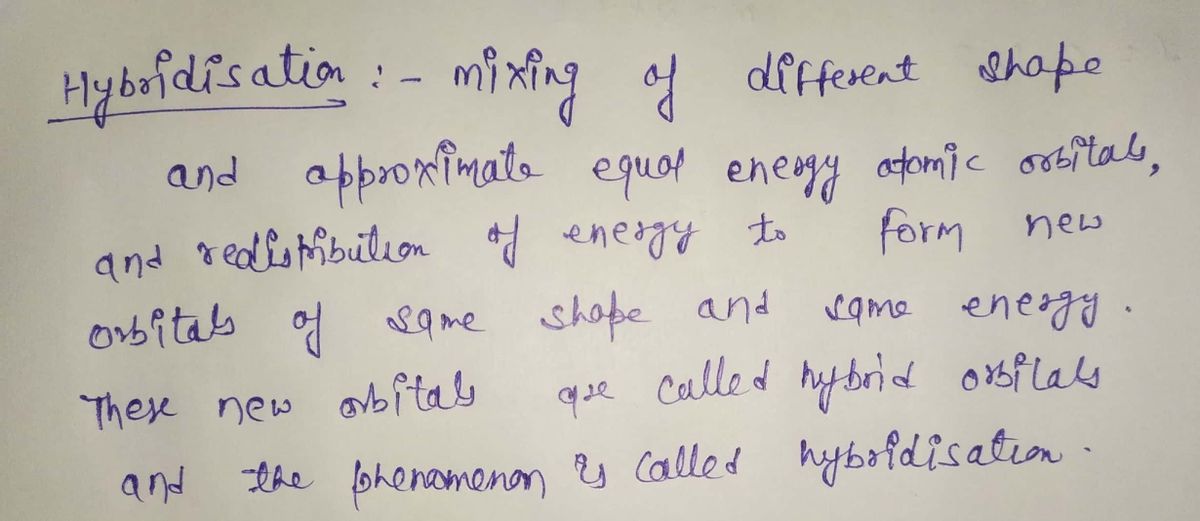 Hybridisation :- mixing of different shape
and approximate equal energy atomic orbitals,
and redistribution of energy to form new
orbitals of same shape and same energy.
These new orbitals are called hybrid orbitals
and the phenomenon is called hybridisation.